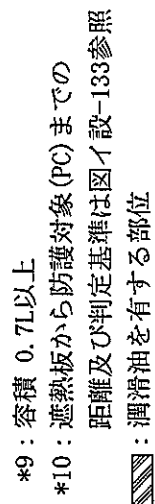 *9：容積 0.7L以上
*10：遮熱板から防護対象(PC)までの
距離及び判定基準は図イ設-133参照
：潤滑油を有する部位